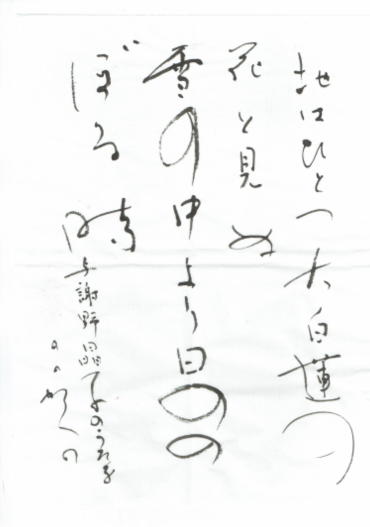 地はひとつ大白蓮の
花と見ぬ
雪の中より日のの
ぼる時
与謝野晶子のうたを